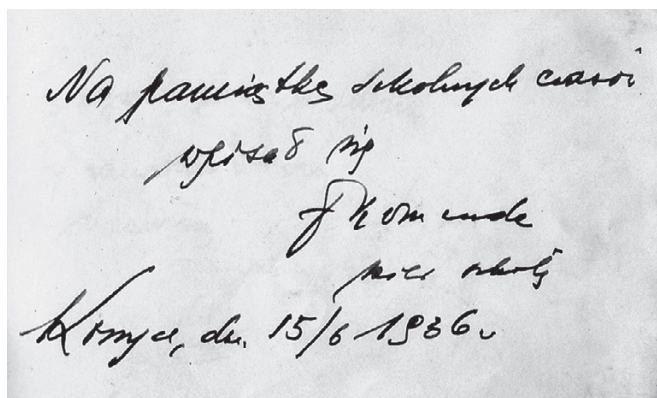 Na pamiątkę szkolnych czasów
wpisał się
J Komenda
kier szkoły
dn. 15/6 1936 r.